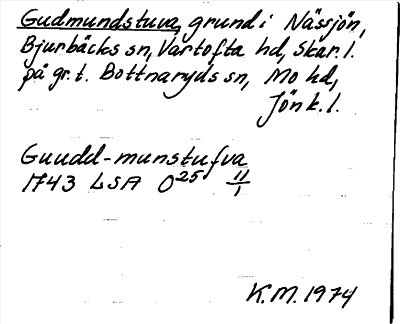 Gudmundstuva, grund i Nässjön,
Bjurbäcks sn, Vartofta hd, Skar. l.
på gr. t. Bottnaryds sn, Mo hd,
Jönk. l.
Guudd-munstufva
1743 LSA O 25 11/1
K.M. 1974